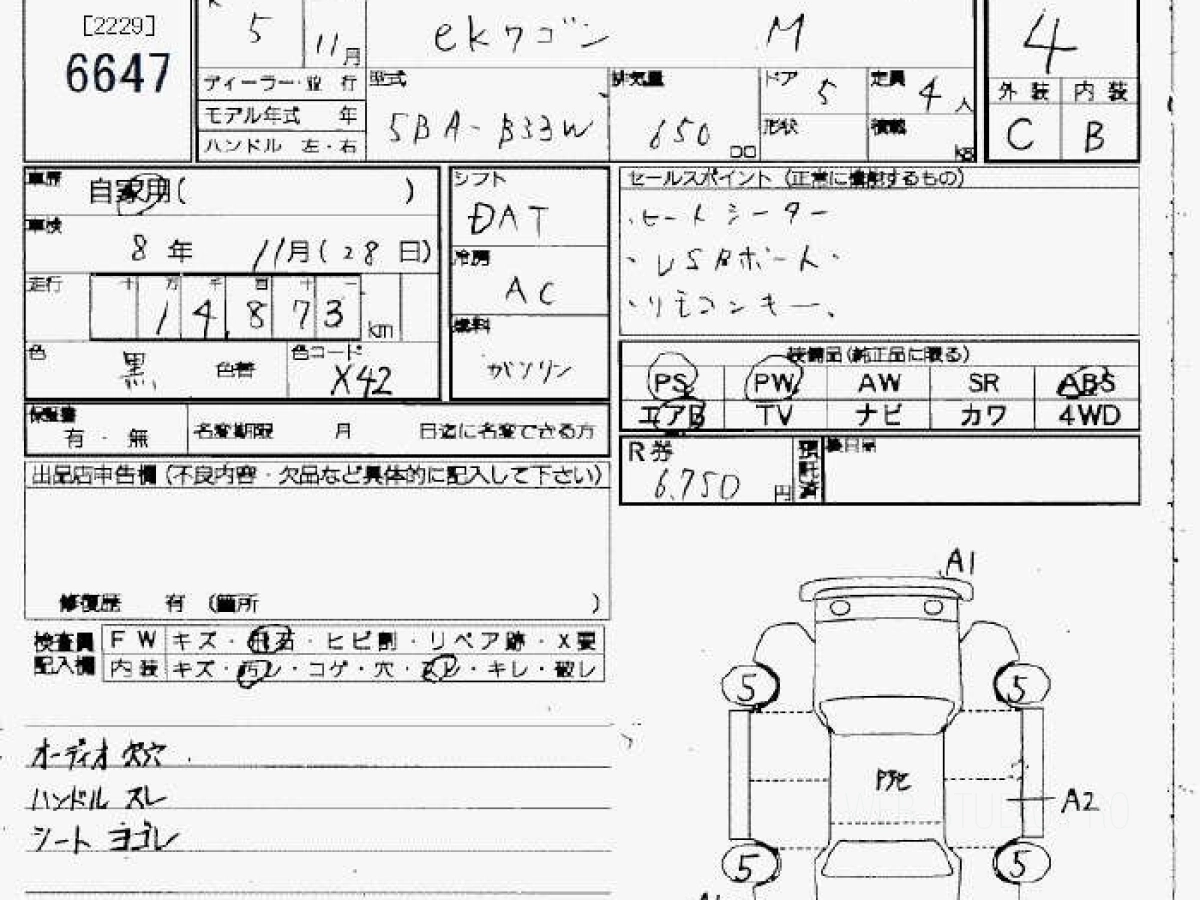 [2229]
6647
5 11月
ekワゴン M
4
ディーラー・並 行
モデル年式 年
ハンドル 左・右
型式
5BA-B33W
排気量
650 cc
ドア 5
定員 4人
形状
積載 kg
外装 内装
C B
車歴 自家用( )
車検
8年 11月(28日)
走行 十 万 千 百 十 一
14,873 km
色 黒 色替
色コード
X42
シフト
DAT
冷房
AC
燃料
ガソリン
セールスポイント(正常に機能するもの)
・ヒートシーター
・USBポート・
・リモコンキー、
装備品(純正品に限る)
PS PW AW SR ABS
エアB TV ナビ カワ 4WD
保証書
有・無
名変期限 月 日迄に名変できる方
R券
6,750 円
預託済
後日品
出品店申告欄(不良内容・欠品など具体的に記入して下さい)
修復歴 有 (箇所 )
検査員記入欄
FW キズ・飛石・ヒビ割・リペア跡・X要
内装 キズ・汚レ・コゲ・穴・スレ・キレ・破レ
オーディオ欠穴
ハンドル スレ
シート ヨゴレ
A1
5 5
A2
5 5